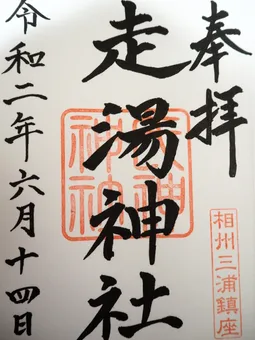 奉拝
走湯神社
令和二年六月十四日
相州三浦鎮座